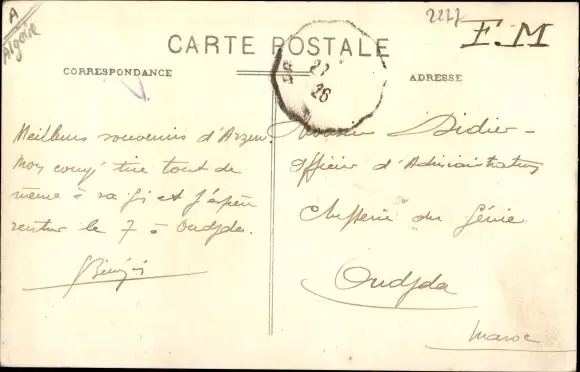 A
Algérie
2277
E.M
CARTE POSTALE
27
26
CORRESPONDANCE
ADRESSE
Meilleurs souvenirs d'Arzew.
Mon congé tire tout de
même à sa fin et j'espère
rentrer le 7 à Oudjda.
Monsieur Didier -
Officier d'Administration
Chefferie du Génie
Oudjda
Maroc